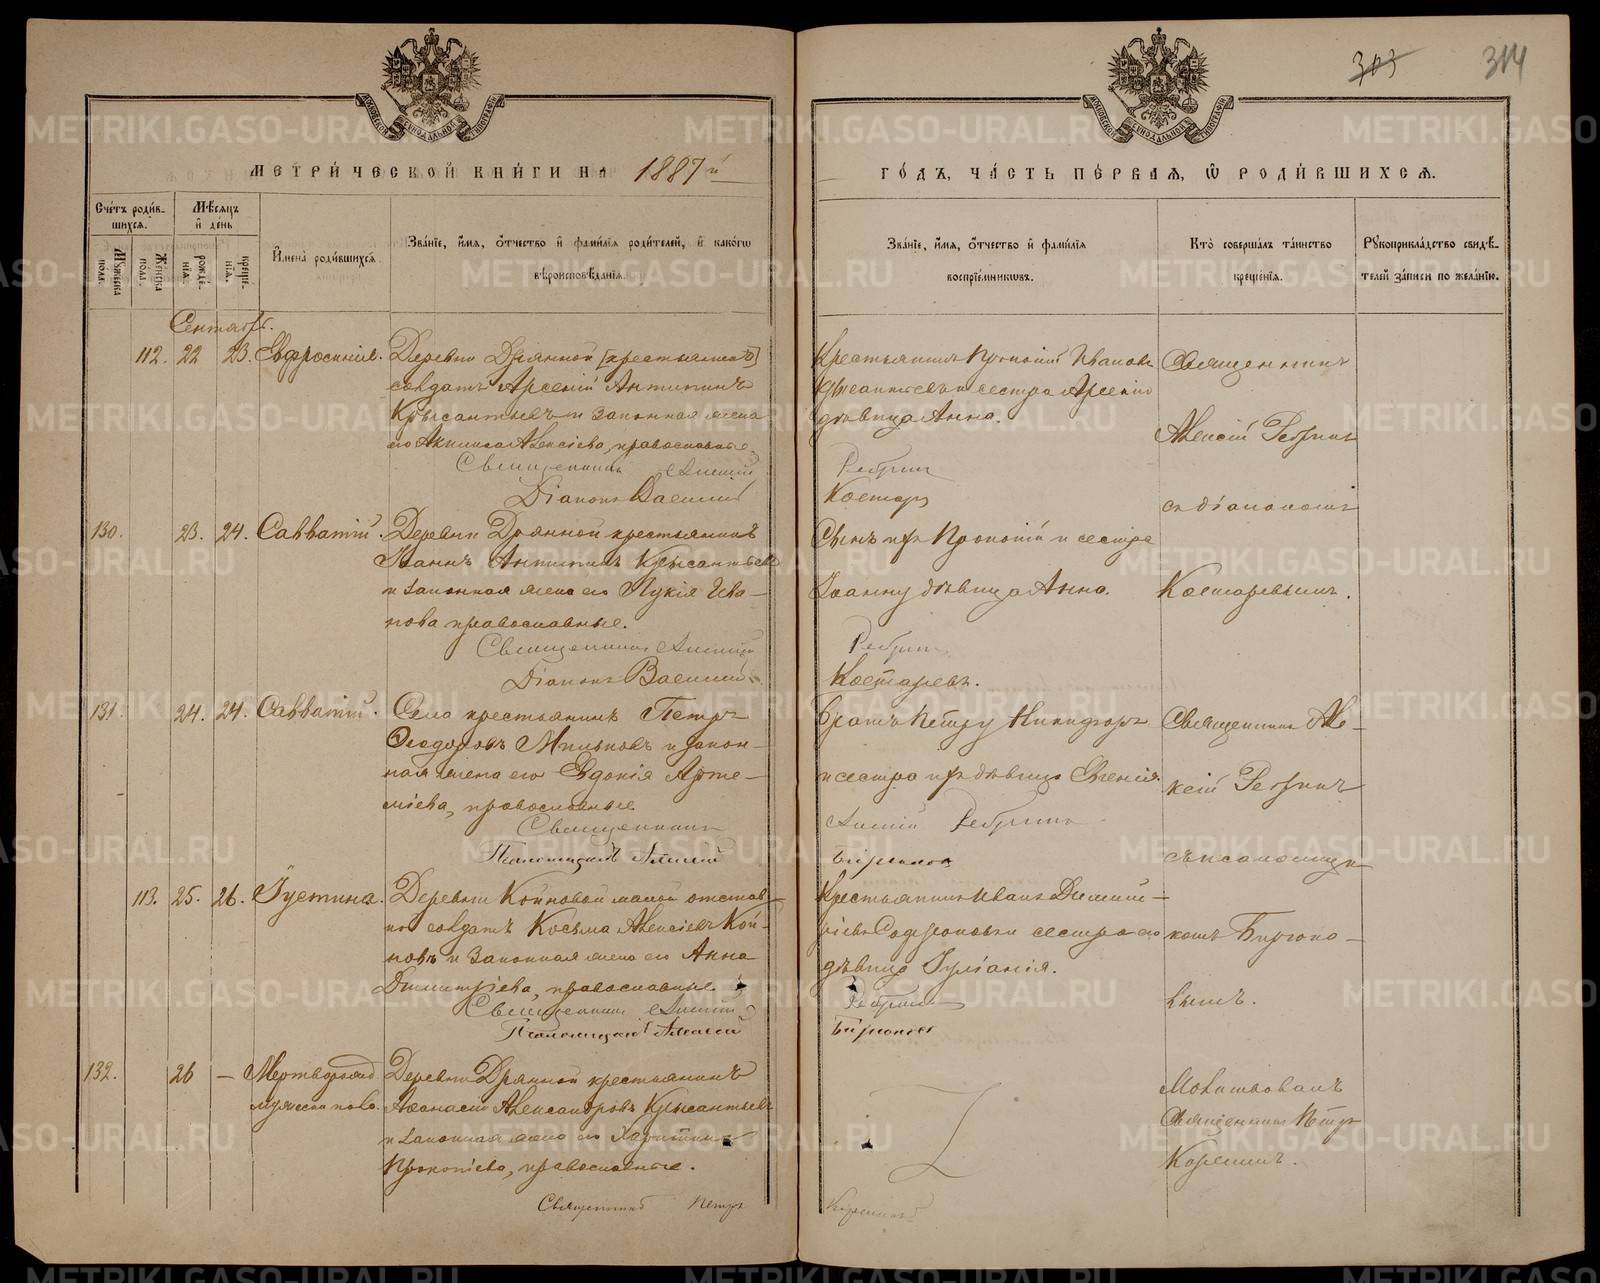 303 314
МЕТРИ́ЧЕСКОЙ КНИ́ГИ НА 1887 й
ГО́ДЪ, ЧА́СТЬ ПЕ́РВАЯ, Ѿ РОДИ́ВШИХСЯ.
Сче́тъ роди́вшихся.
Мꙋ́жеска по́ла.
Же́нска по́ла.
Мѣ́сяцъ и҆ де́нь
рожде́нїя.
креще́нїя.
И҆мена̀ роди́вшихся.
Зва́нїе, и҆́мя, ѻ҆́тчество и҆ фами́лїя роди́телей, и҆ како́гѡ вѣроисповѣ́данїя.
Зва́нїе, и҆́мя, ѻ҆́тчество и҆ фами́лїя воспрїе́мникѡвъ.
Кто̀ соверша́лъ та́инство креще́нїя.
Рꙋкоприкла́дство свидѣ́телей за́писи по жела́нїю.
Сентябрь.
112. 22 23. Евфросинія.
Деревни Дрянной [крестьянинъ]
солдатъ Арсеній Антипинъ
Крысантьевъ и законная жена
его Акилина Алексіева, православные.
Священникъ Алексій
Діаконъ Василій
Крестьянинъ Прокопій Ивановъ
Крысантьевъ и сестра Арсенію
дѣвица Анна.
Ребринъ
Костар
Священникъ
Алексій Ребринъ
съ діакономъ
Костаревымъ.
130. 23. 24. Савватій.
Деревни Дрянной крестьянинъ
Іоаннъ Антипинъ Крысантьевъ
и законная жена его Лукія Ива-
нова православные.
Священникъ Алексій
Діаконъ Василій
Сынъ кр. Прокопій и сестра
Іоанну дѣвица Анна.
Ребринъ
Костаревъ.
131. 24. 24. Савватій.
Села крестьянинъ Петръ
Ѳеодоровъ Мильковъ и закон-
ная жена его Евдокія Арте-
міева, православные
Священникъ
Псаломщикъ Алексій
Братъ Петру Никифоръ
и сестра кр. дѣвица Евгенія
Алексій Ребринъ
Бирюковъ
Священникъ Але-
ксій Ребринъ
съ псаломщи
комъ Бирюко-
вымъ.
113. 25. 26. Іустина.
Деревни Койновой малой отстав-
но солдатъ Косьма Алексіевъ Кой-
новъ и законная жена его Анна
Димитріева, православные.
Священникъ Алексій
Псаломщикъ Алексій
Крестьянинъ Иванъ Димит-
ріевъ Софроновъ и сестра его
дѣвица Іуліанія.
Ребринъ
Бирюковъ
132. 26 — Мертворожд
мужеска пола.
Деревни Дрянной крестьянинъ
Аѳанасій Александровъ Крысантьевъ
и законная жена его Харитина
Прокопіева, православные.
Священникъ Петръ
Молитвовалъ
Священникъ Петръ
METRIKI.GASO-URAL.RU